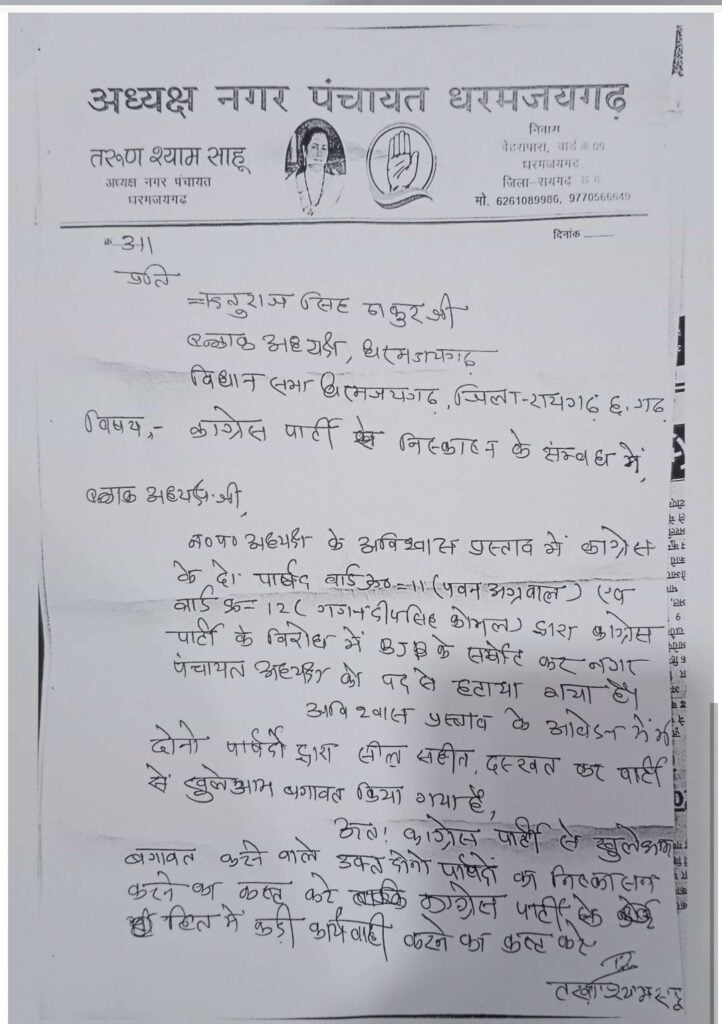 अध्यक्ष नगर पंचायत धरमजयगढ़
तरूण श्याम साहू
अध्यक्ष नगर पंचायत
धरमजयगढ़
निवास
बेहरापारा, वार्ड क्र 09
धरमजयगढ़
जिला-रायगढ़ छ.ग.
मो. 6261089986, 9770566649
दिनांक ............
क्र 311
प्रति
राज सिंह ठाकुर जी
ब्लाक अध्यक्ष, धरमजयगढ़
विधान सभा धरमजयगढ़, जिला-रायगढ़ छ. गढ़
विषय,- कांग्रेस पार्टी से निस्कासन के संम्बध में,
ब्लाक अध्यक्ष जी,
न०प० अध्यक्ष के अविश्वास प्रस्ताव में कांग्रेस
के दो पार्षद वार्ड क्र०=11 (पवन अग्रवाल) एव
वार्ड क्र=12 ( गगनदीपसिह कोमल) द्वारा कांग्रेस
पार्टी के विरोध में BJP के सर्मथन कर नगर
पंचायत अध्यक्ष को पद से हटाया गया है।
अविश्वास प्रस्ताव के आवेदन में भी
दोनो पार्षदों द्वारा सील सहीत, दस्खत कर पार्टी
से खुलेआम बगावत किया गया है,
अत! कांग्रेस पार्टी से खुलेआम
बगावत करने वाले उक्त दोनो पार्षदों का निस्कासन
करने का कष्ट करे कांग्रेस पार्टी के
हित में कड़ी कार्यवाही करने का कष्ट करे